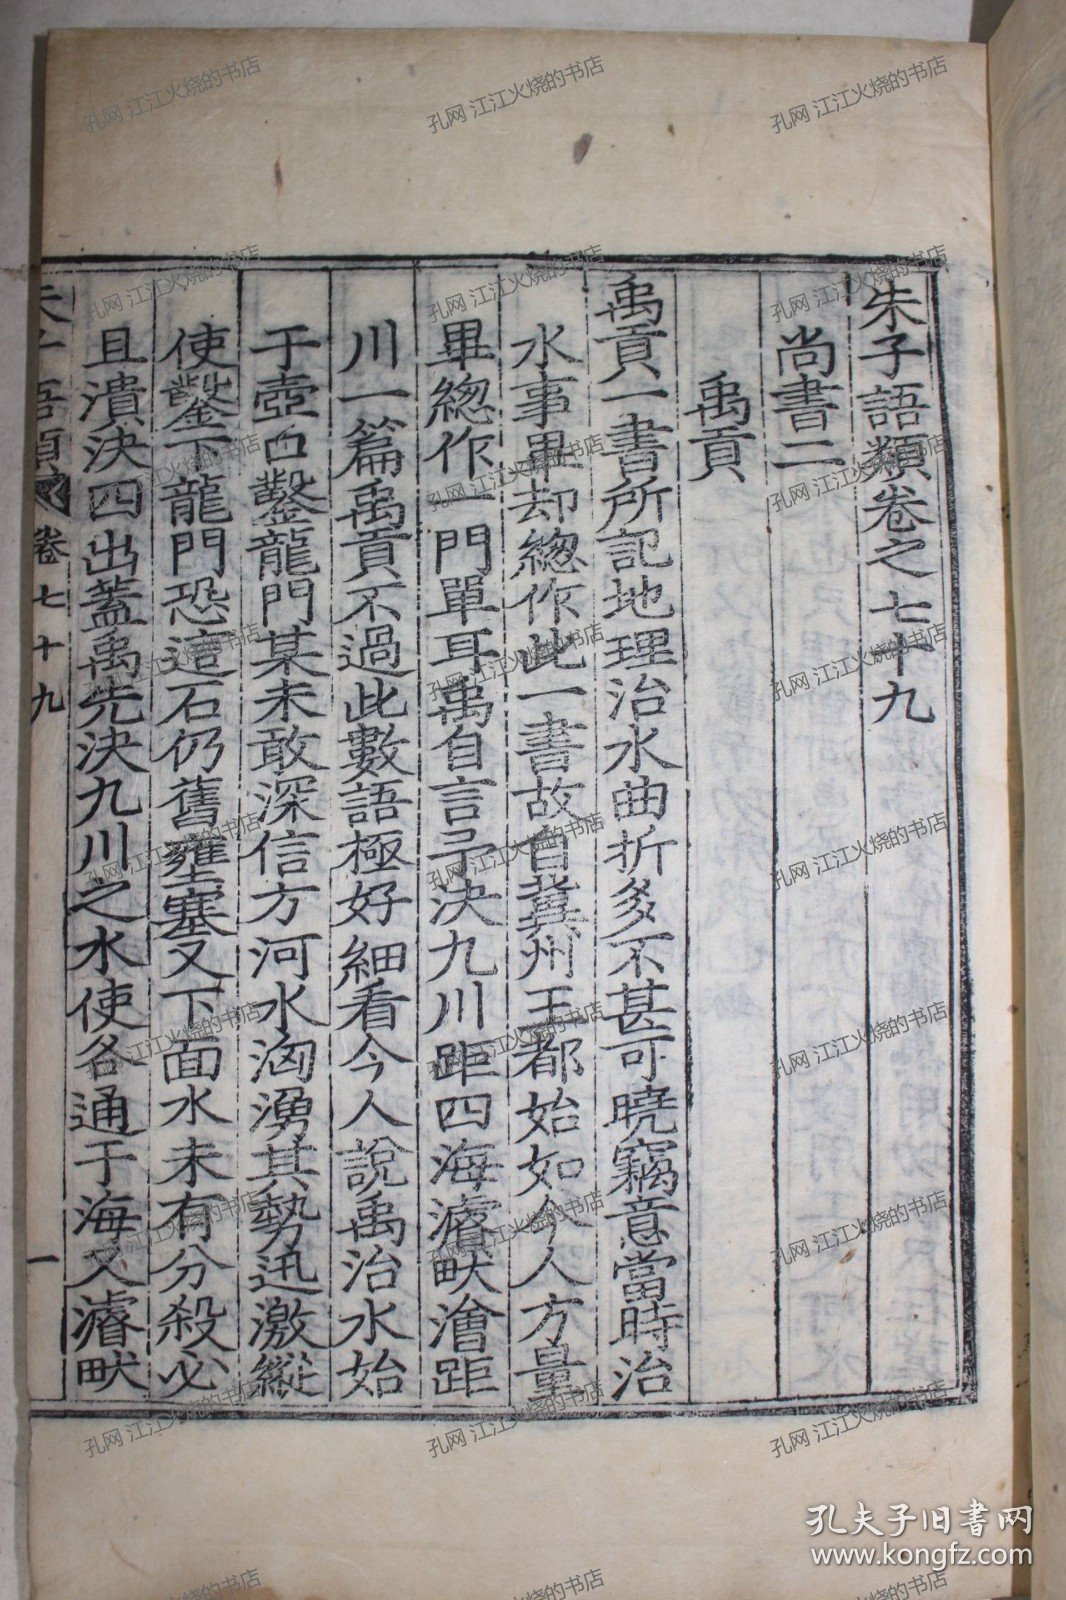 朱子語類卷之七十九
尚書二
禹貢
禹貢一書所記地理治水曲折多不甚可曉竊意當時治
水事畢却總作此一書故自冀州王都始如今人方量
畢總作一門單耳禹自言予決九川距四海濬畎澮距
川一篇禹貢不過此數語極好細看今人說禹治水始
于壺口鑿龍門某未敢深信方河水洶湧其勢迅激縱
使鑿下龍門恐這石仍舊壅塞又下面水未有分殺必
且潰決四出蓋禹先決九川之水使各通于海又濬畎
朱子語類 卷七十九 一
孔网 江江火烧的书店
孔夫子旧书网
www.kongfz.com